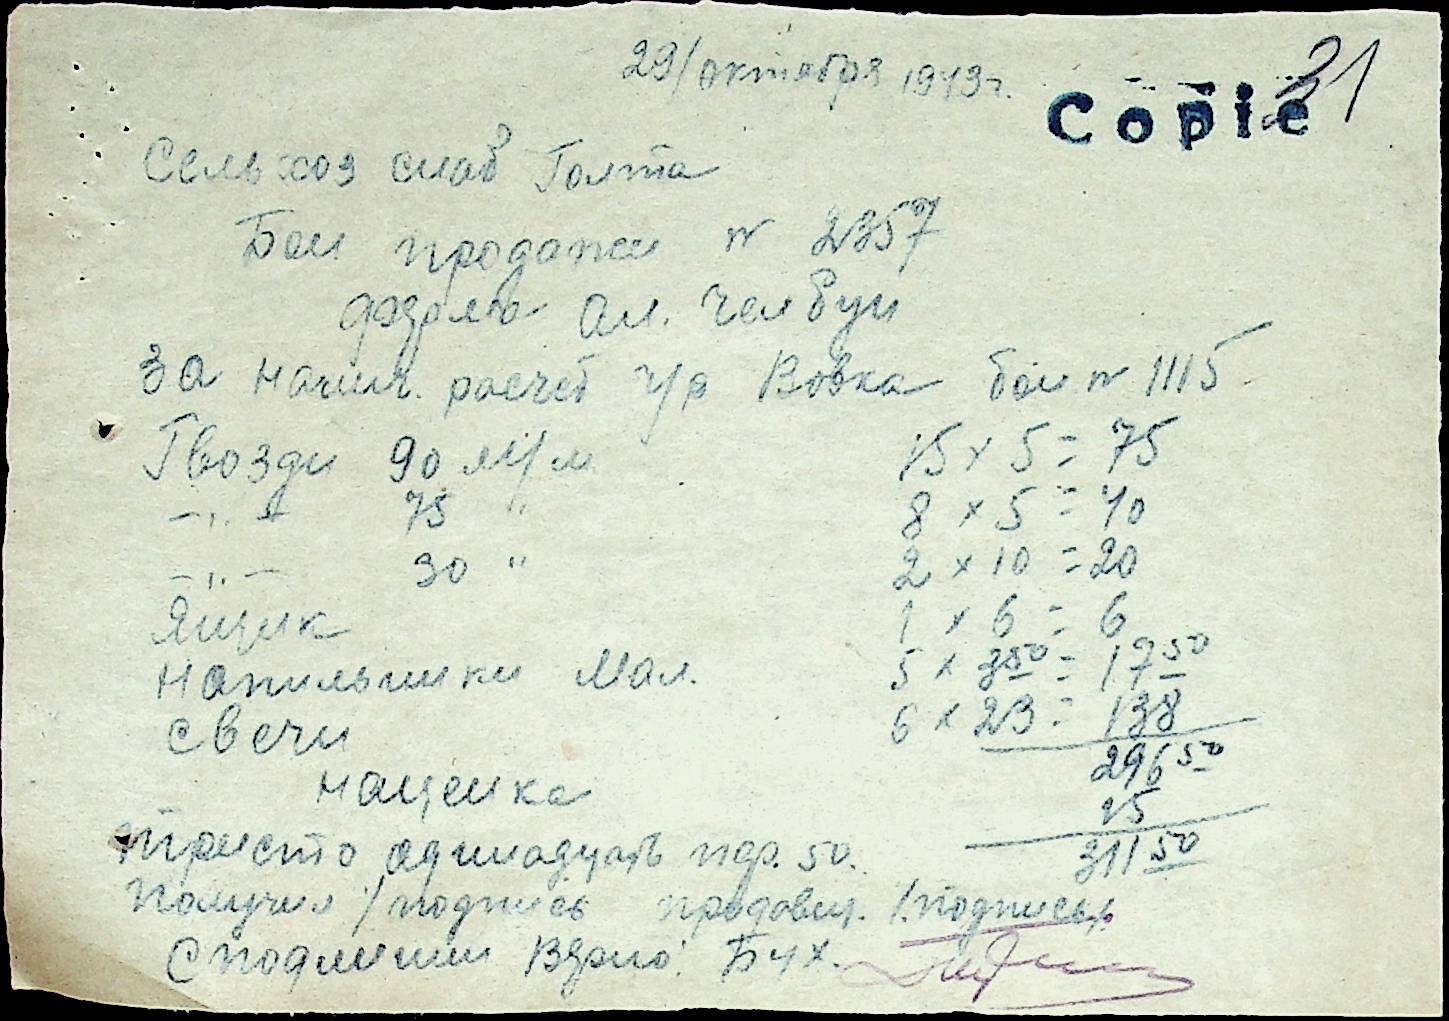 31
29/октября 1943г.
Copie
Сельхоз снаб Голта
Бон продажи № 2357
ферма Ал. Челбуи
За налич. расчет ч/р Вовка бон № 1115
Гвозди 90 м/м 15 × 5 = 75
-"- 75 " 8 × 5 = 40
-"- 30 " 2 × 10 = 20
Ящик 1 × 6 = 6
Напильники мал. 5 × 350 = 1750
Свечи 6 × 23 = 138
29650
наценка 15
31150
Триста одинадцать пфр. 50.
Получил /подпись продавец. /подпись/
С подлиным верно: Бух.